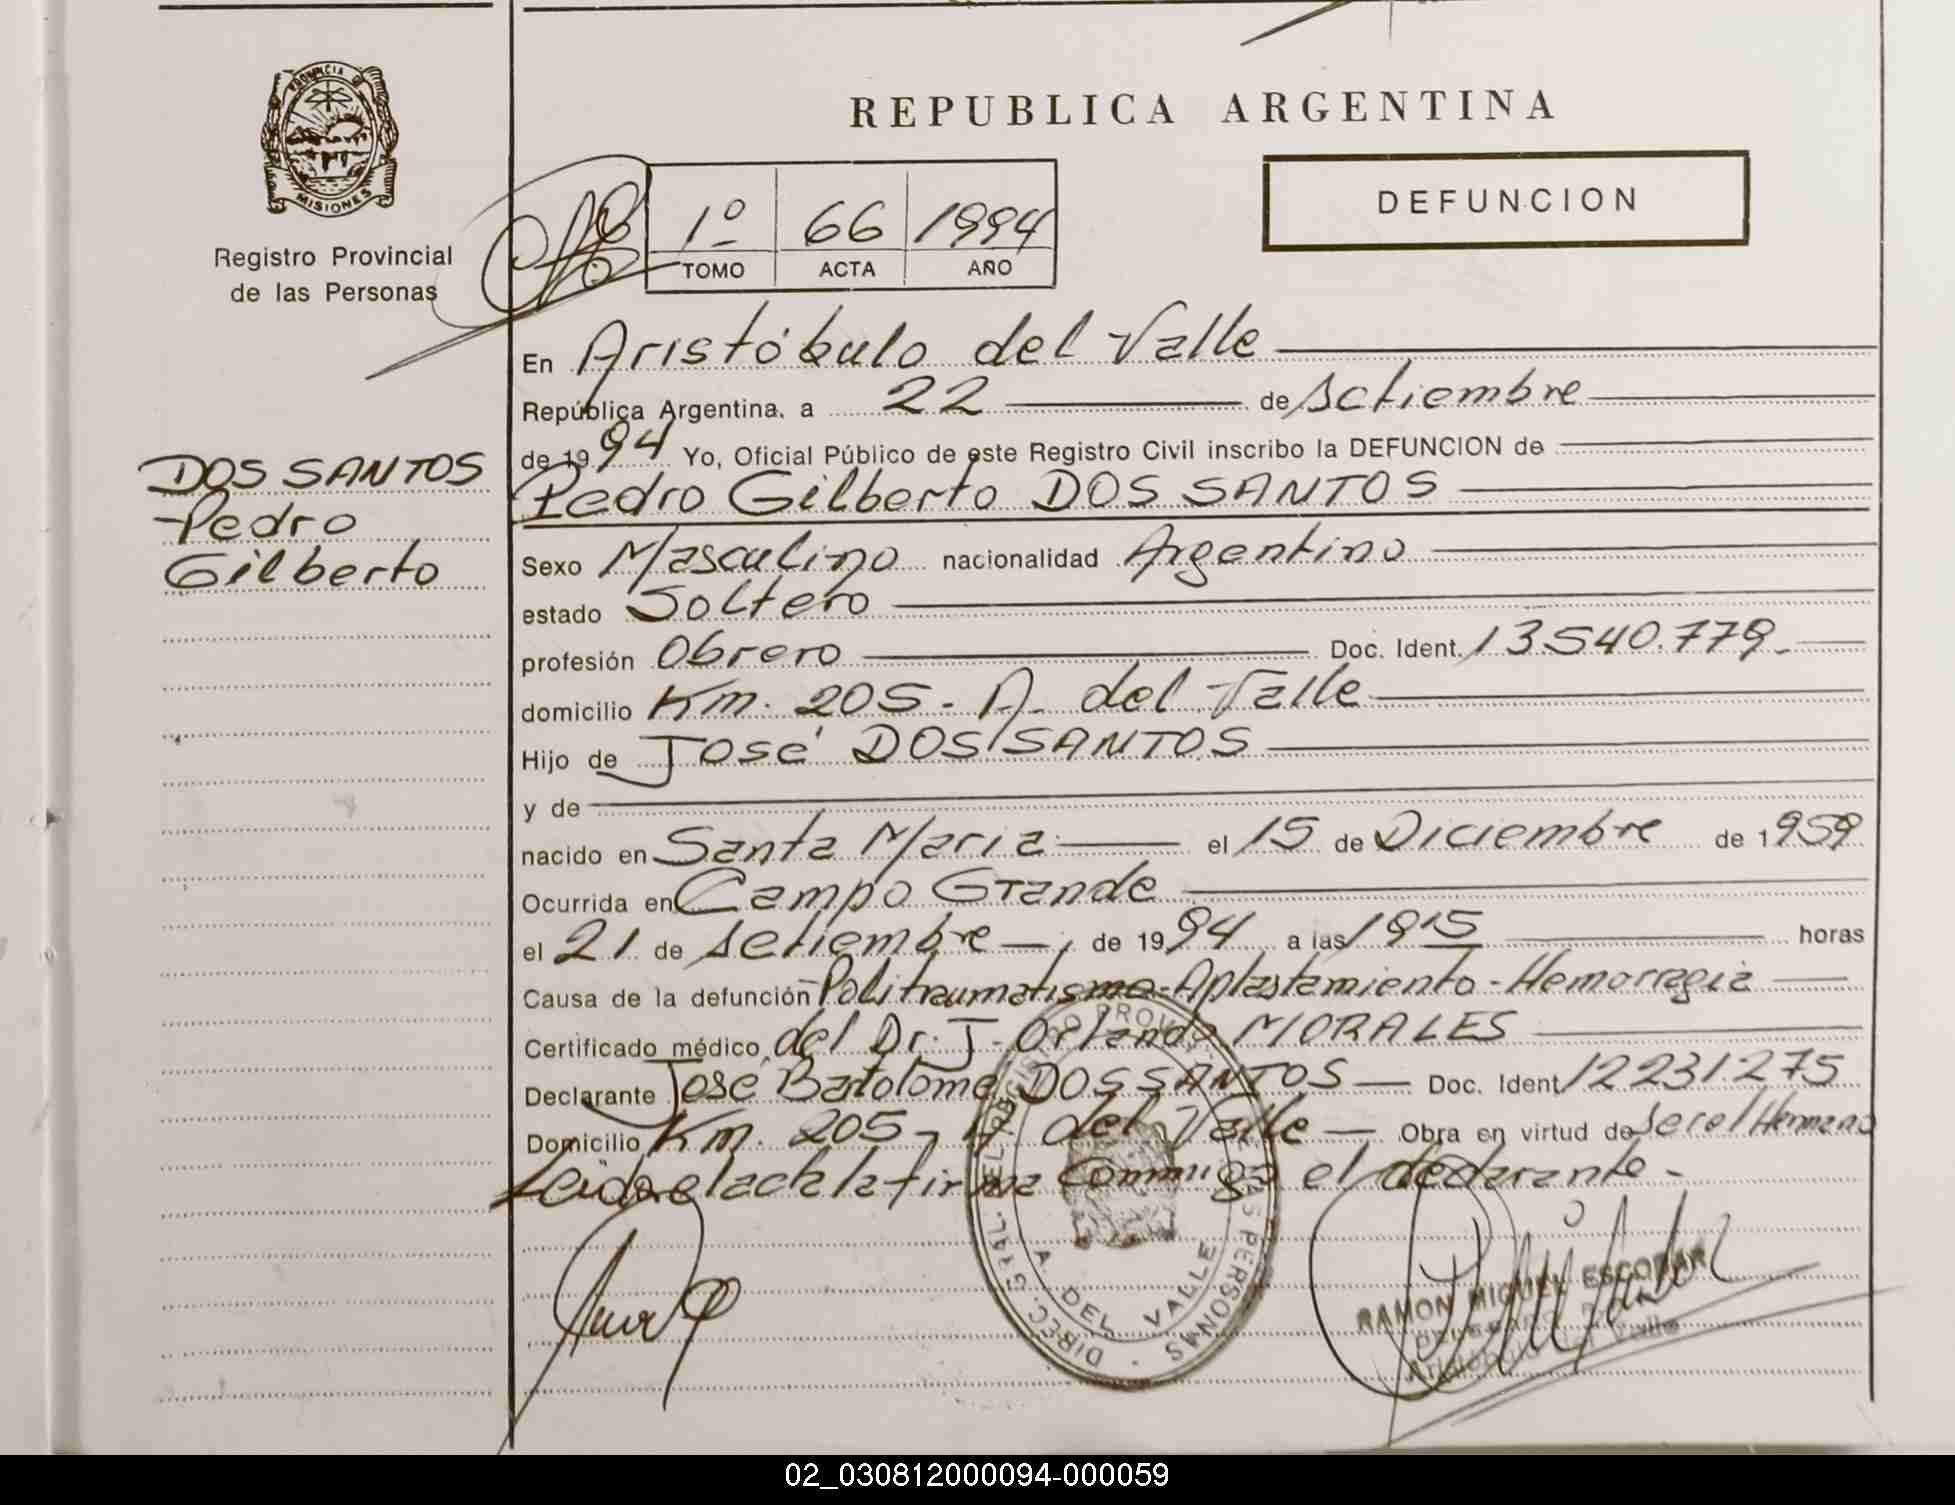 PROVINCIA DE
MISIONES
Registro Provincial
de las Personas
REPUBLICA ARGENTINA
1º 66 1994
TOMO ACTA AÑO
DEFUNCION
DOS SANTOS
Pedro
Gilberto
En Aristóbulo del Valle
República Argentina, a 22 de setiembre
de 1994 Yo, Oficial Público de este Registro Civil inscribo la DEFUNCION de
Pedro Gilberto DOS SANTOS
Sexo Masculino nacionalidad Argentino
estado Soltero
profesión Obrero Doc. Ident. 13.540.779.
domicilio Km. 205 - A. del Valle
Hijo de José DOS SANTOS
y de
nacido en Santa Maria el 15 de Diciembre de 1959
Ocurrida en Campo Grande
el 21 de setiembre, de 1994 a las 19 15 horas
Causa de la defunción Politraumatismo-Aplastamiento-Hemorragia
Certificado médico del Dr. J. Orlando MORALES
Declarante José Bartolomé DOS SANTOS Doc. Ident 12231275
Domicilio Km. 205 - A del Valle Obra en virtud de ser el Hermano
Leida el acta la firma conmigo el declarante.
A. DEL VALLE
RAMON MIGUEL ESCOBAR
Aristóbulo del Valle
02_030812000094-000059